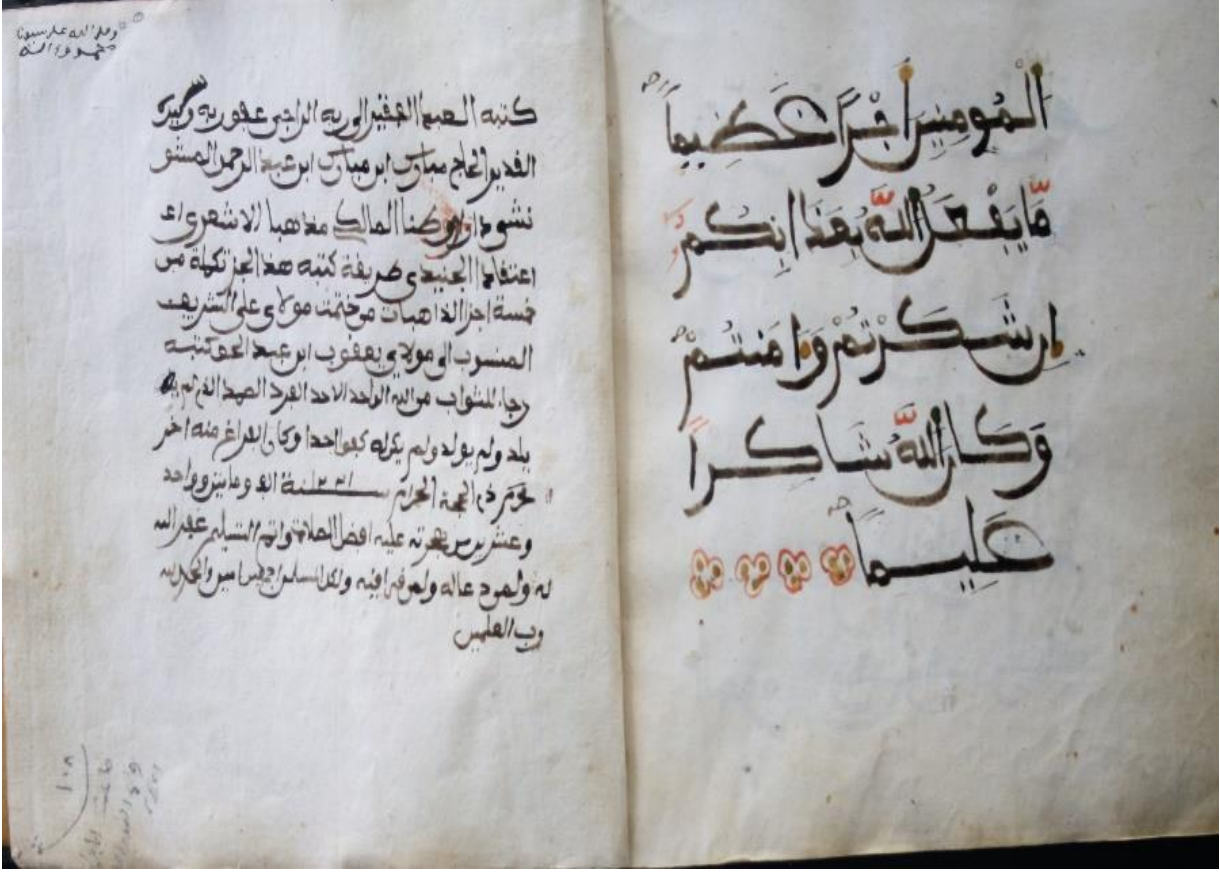 المومنين أجراً عظيماً
مّا يفعل اللّه بعذابكم
إن شكرتم وءامنتم
وكان اللّه شاكراً
عليماً
وصلى الله على سيدنا
محمد وءاله
كتبه العبد الفقير الى ربه الراجى عفو ربه
القدير الحاج مبارك ابن مبارك ابن عبد الرحمن
وطنا المالكى مذهبا الاشعرى
اعتقادا الجنيدى طريقة كتبه هذ الجز تكملة من
خمسة اجزا الذاهبات من ختمت مولاى على الشريف
المنسوب الى مولاي يعقوب ابن عبد الحق كتبه
رجاء للثواب من الله الواحد الاحد الفرد الصمد الذى لم
يلد ولم يولد ولم يكن له كفوا احدا وكان الفراغ منه اخر
ذى الحجة الحرام سنة الف ومايتن وواحد
وعشرين من هجرته عليه افضل الصلاة واتم التسليم غفر الله
له ولمن دعا له ولمن قرا فيه ولكل المسلمين اجمعين امين والحمد لله
رب العلمين